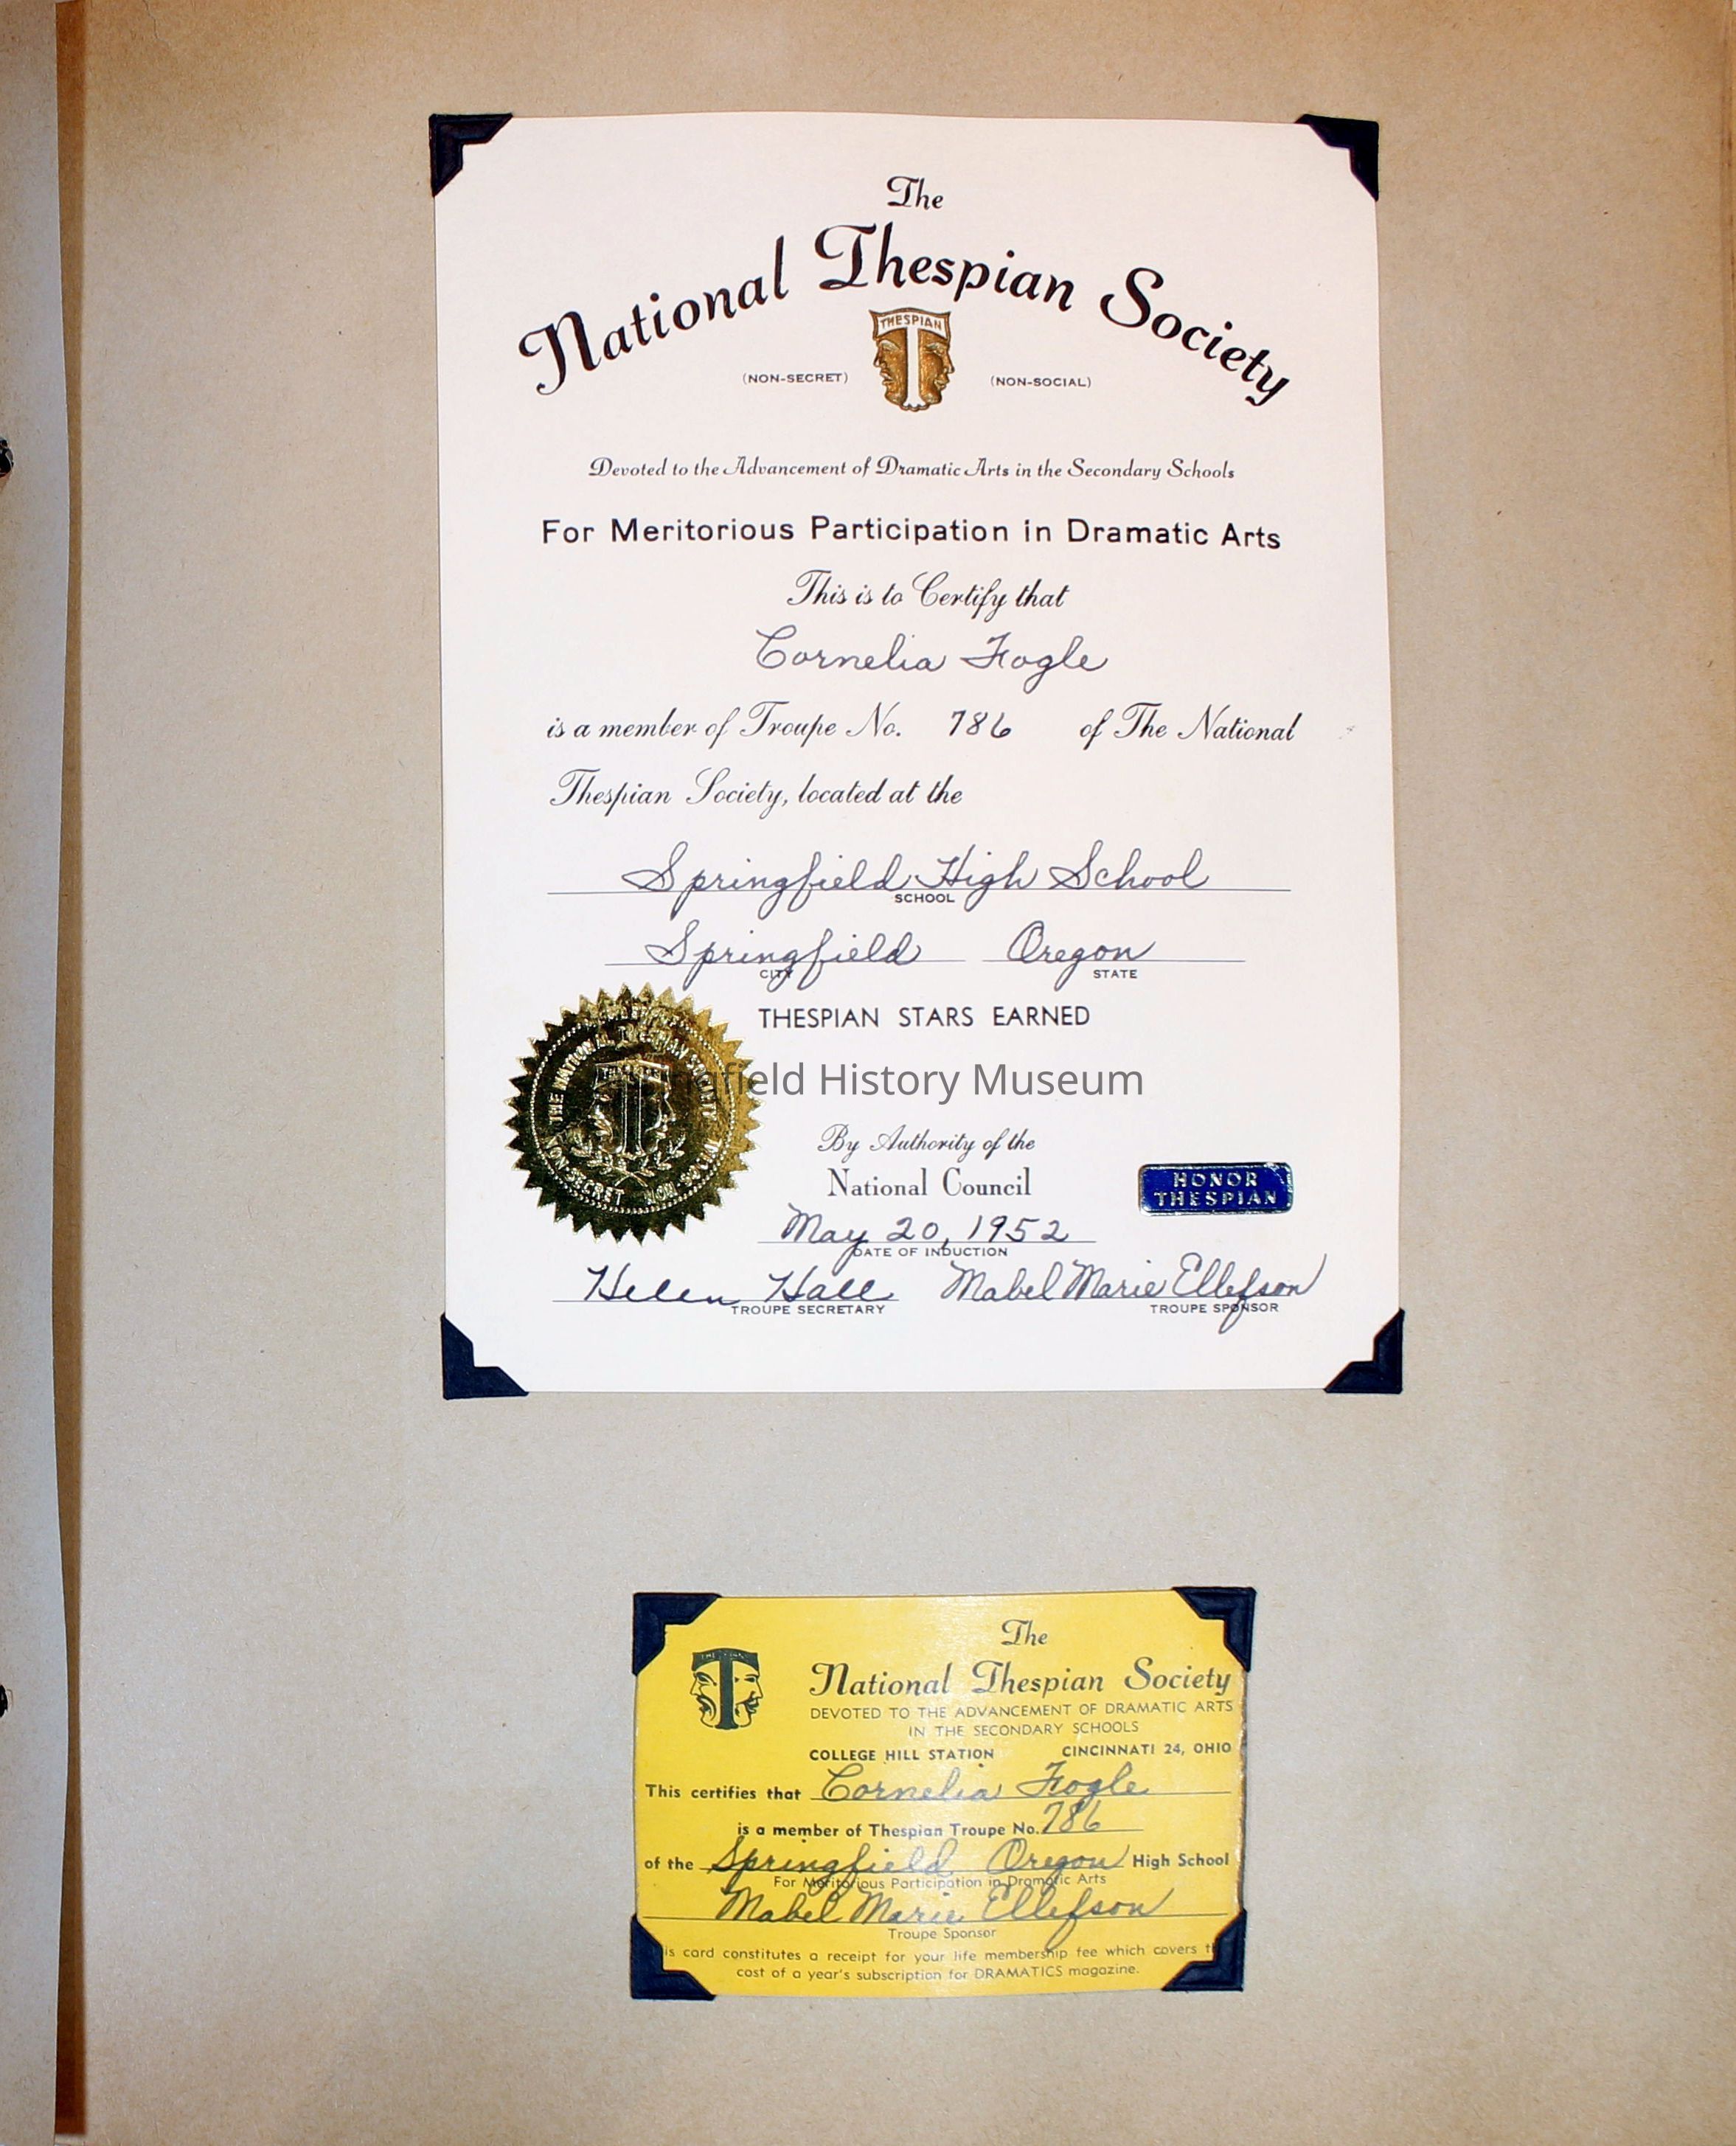 The
National Thespian Society
THESPIAN
(NON-SECRET) (NON-SOCIAL)
Devoted to the Advancement of Dramatic Arts in the Secondary Schools
For Meritorious Participation in Dramatic Arts
This is to Certify that
Cornelia Fogle
is a member of Troupe No. 786 of The National
Thespian Society, located at the
Springfield High School
SCHOOL
Springfield Oregon
CITY STATE
THESPIAN STARS EARNED
THE NATIONAL THESPIAN SOCIETY
NON-SECRET NON-SOCIAL
field History Museum
By Authority of the
National Council
HONOR
THESPIAN
May 20, 1952
DATE OF INDUCTION
Helen Hall Mabel Marie Ellefson
TROUPE SECRETARY TROUPE SPONSOR
The
National Thespian Society
DEVOTED TO THE ADVANCEMENT OF DRAMATIC ARTS
IN THE SECONDARY SCHOOLS
COLLEGE HILL STATION CINCINNATI 24, OHIO
This certifies that Cornelia Fogle
is a member of Thespian Troupe No. 786
of the Springfield Oregon High School
For Meritorious Participation in Dramatic Arts
Mabel Marie Ellefson
Troupe Sponsor
is card constitutes a receipt for your life membership fee which covers t
cost of a year's subscription for DRAMATICS magazine.